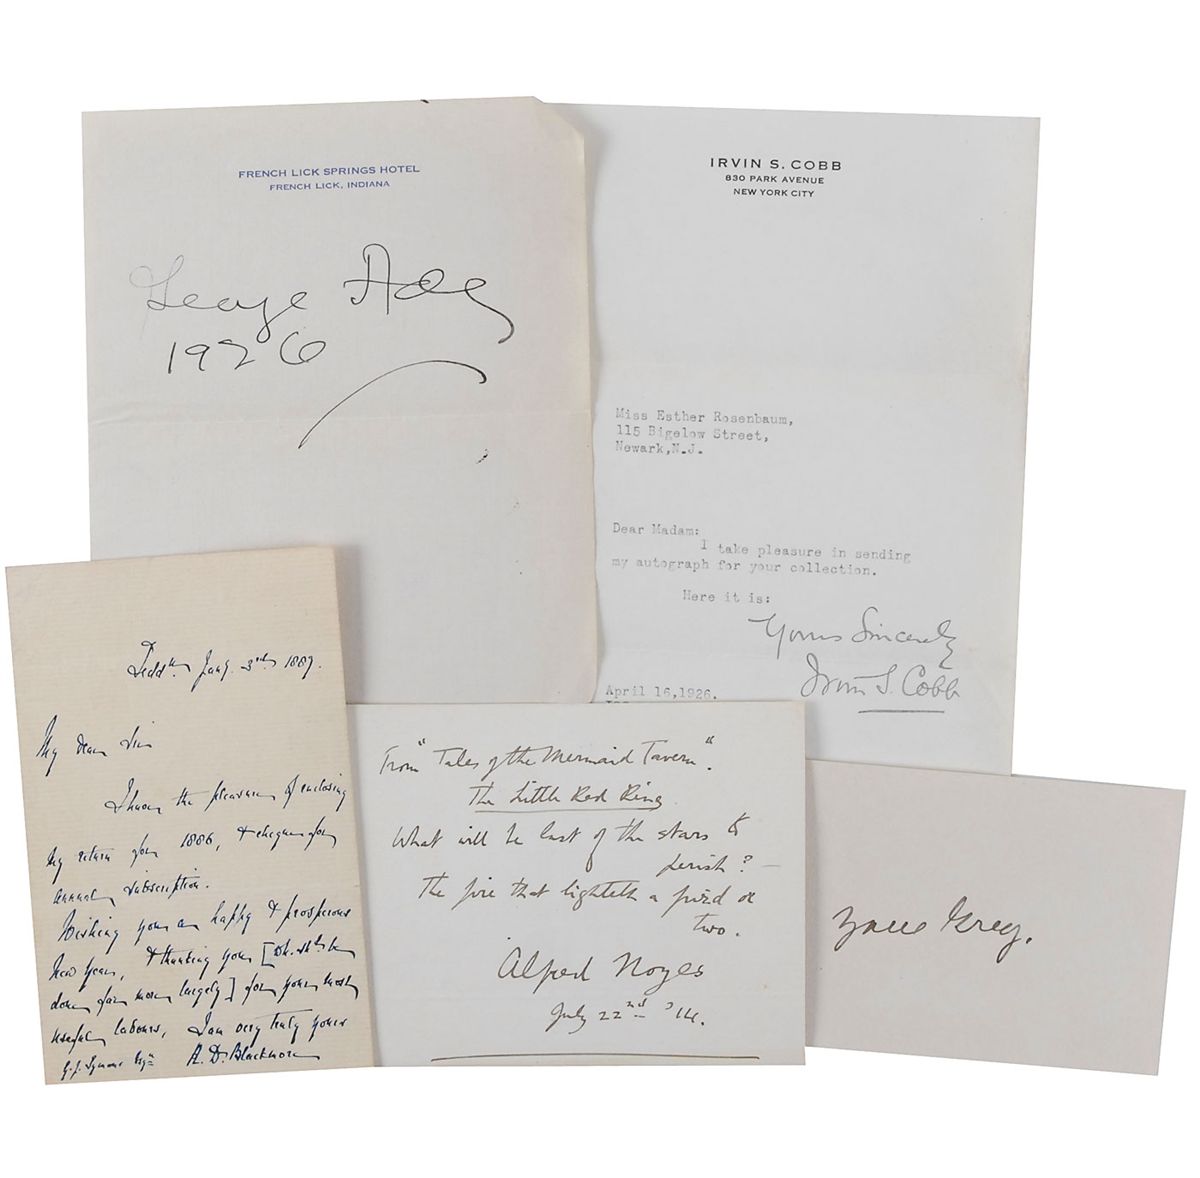 FRENCH LICK SPRINGS HOTEL
FRENCH LICK, INDIANA
George Ade
1926
IRVIN S. COBB
830 PARK AVENUE
NEW YORK CITY
Miss Esther Rosenbaum,
115 Bigelow Street,
Newark,N.J.
Dear Madam:
I take pleasure in sending
my autograph for your collection.
Here it is:
Yours Sincerely
Irvin S. Cobb
April 16,1926.
Tedd<sup>n</sup> Jan<sup>y</sup>. 3<sup>rd</sup> 1887.
My dear Sir
I have the pleasure of enclosing
my return for 1886, & cheque for
annual subscription.
Wishing you a happy & prosperous
New Year, & thanking you [
done far more largely] for your most
useful labours, I am very truly yours
G. J. Symons Esq<sup>re</sup> R. D. Blackmore
From "Tales of the Mermaid Tavern".
The Little Red Ring
What will be last of the stars to
perish? —
The fire that lighteth a ring or
two.
Alfred Noyes
July 22<sup>nd</sup> '14.
Zane Grey.